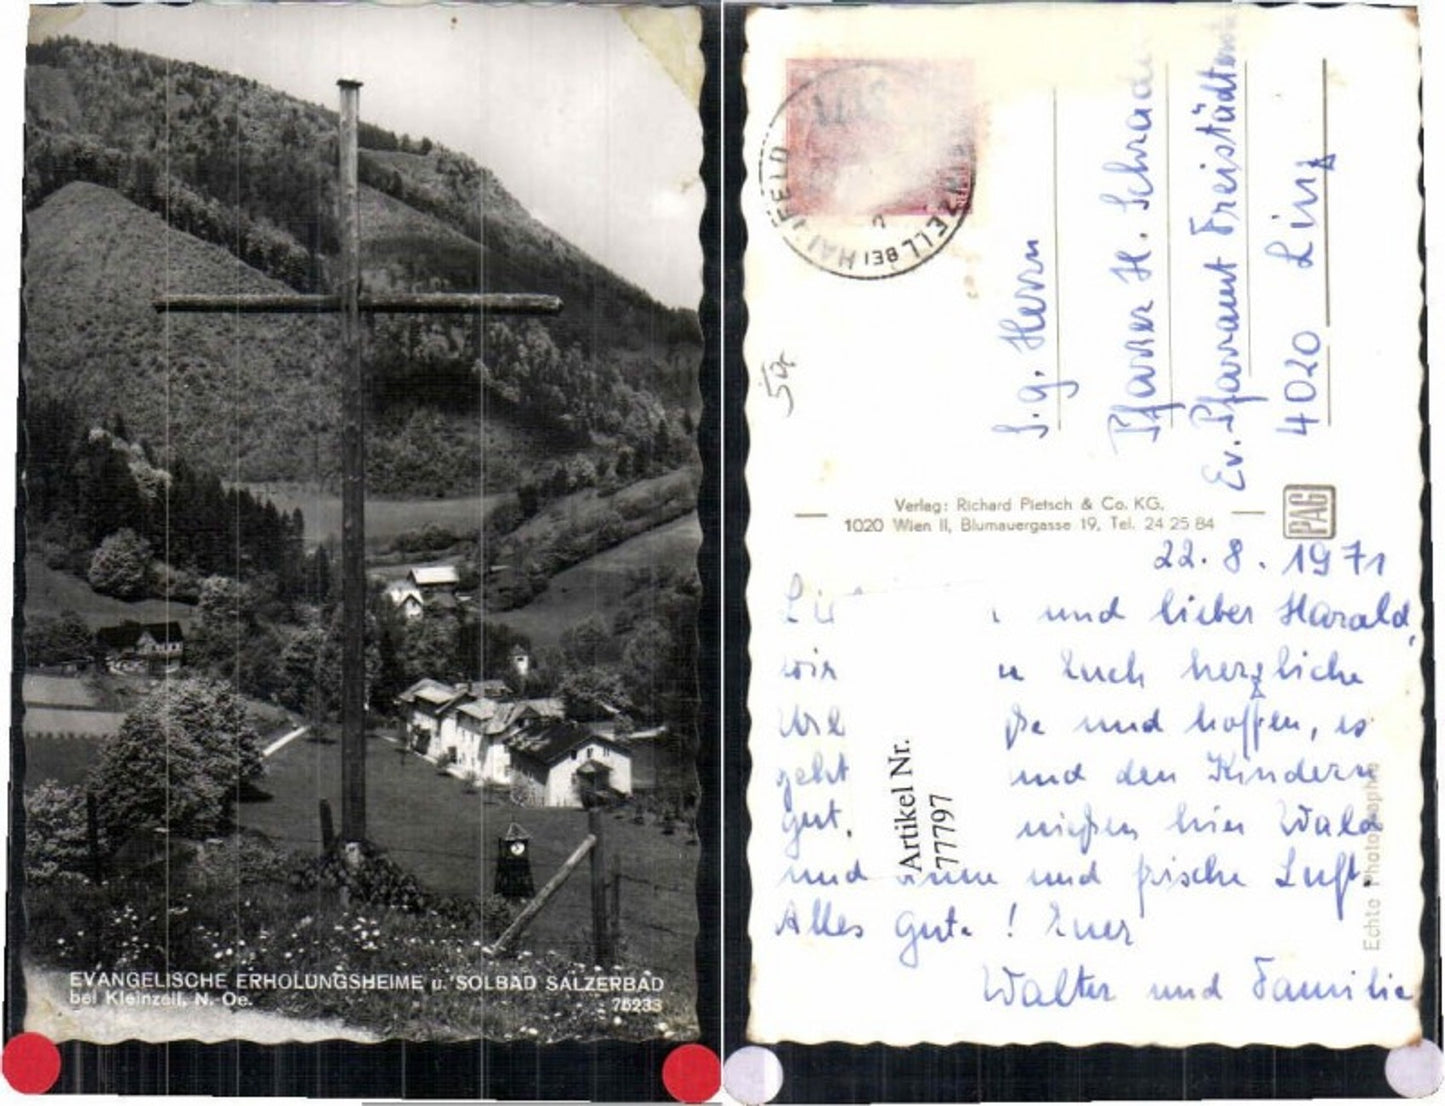 EVANGELISCHE ERHOLUNGSHEIME u. SOLBAD SALZERBAD
bei Kleinzell, N.-Oe.
75233
ZELL BEI HAINFELD
S. g. Herrn
Pfarrer H. Schrade
Ev. Pfarramt Freistädterstr
4020 Linz
Verlag: Richard Pietsch & Co. KG.
1020 Wien II, Blumauergasse 19, Tel. 24 25 84
PAG
22. 8. 1971
und lieber Harald,
wir Euch herzliche
und hoffen, es
geht und den Kindern
gut. hier Wald
und und frische Luft.
Alles Gute! Euer
Walter und Familie
Artikel Nr.
77797
Echte Photographie